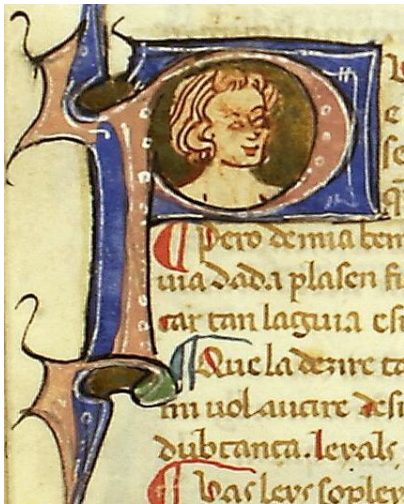 P
e
se
¶ Pero de mia bem
uia dada plasen fi
tar tan laguia esi
¶ Que la dezire ta
mi uol aucire desi
dubtanca. leyals
¶ Vas leys sopley